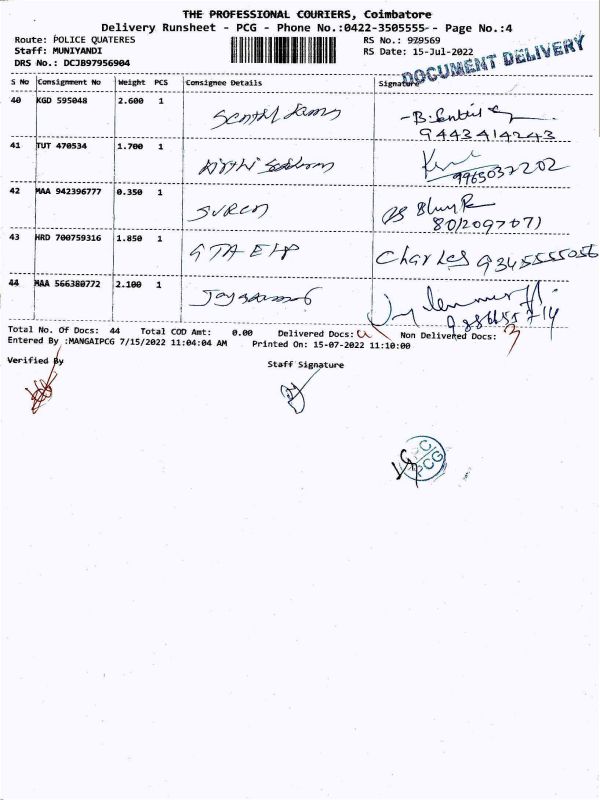 THE PROFESSIONAL COURIERS, Coimbatore
Delivery Runsheet - PCG - Phone No.:0422-3505555-- Page No.:4
Route: POLICE QUATERES RS No.: 929569
Staff: MUNIYANDI RS Date: 15-Jul-2022
DRS No.: DCJB97956904
DOCUMENT DELIVERY
S No Consignment No Weight PCS Consignee Details Signature
40 KGD 595048 2.600 1
9443414243
41 TUT 470534 1.700 1
9965037202
42 MAA 942396777 0.350 1 SUREN
8012097071
43 HRD 700759316 1.850 1 Charles 9345555056
44 MAA 566380772 2.100 1
Total No. Of Docs: 44 Total COD Amt: 0.00 Delivered Docs: Non Delivered Docs: 3
Entered By :MANGAIPCG 7/15/2022 11:04:04 AM Printed On: 15-07-2022 11:10:00
Verified By Staff Signature
PCG